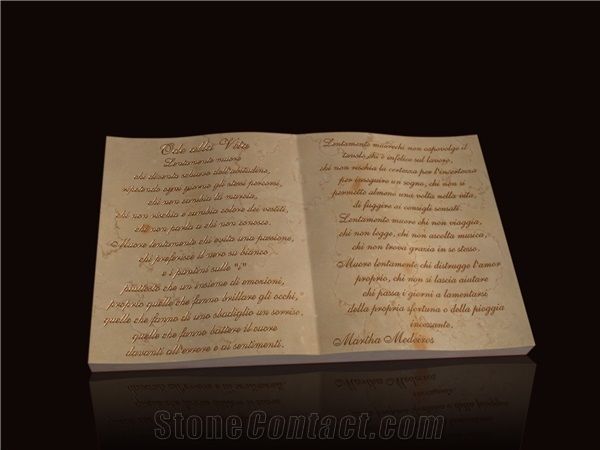 Ode alla Vita
Lentamente muore
chi diventa schiavo dell'abitudine,
ripetendo ogni giorno gli stessi percorsi,
chi non cambia la marcia,
chi non rischia e cambia colore dei vestiti,
chi non parla a chi non conosce.
Muore lentamente chi evita una passione,
chi preferisce il nero su bianco
e i puntini sulle "i"
piuttosto che un insieme di emozioni,
proprio quelle che fanno brillare gli occhi,
quelle che fanno di uno sbadiglio un sorriso,
quelle che fanno battere il cuore
davanti all'errore e ai sentimenti.
Lentamente muore chi non capovolge il
tavolo, chi è infelice sul lavoro,
chi non rischia la certezza per l'incertezza
per inseguire un sogno, chi non si
permette almeno una volta nella vita,
di fuggire ai consigli sensati.
Lentamente muore chi non viaggia,
chi non legge, chi non ascolta musica,
chi non trova grazia in se stesso.
Muore lentamente, chi distrugge l'amor
proprio, chi non si lascia aiutare
chi passa i giorni a lamentarsi
della propria sfortuna o della pioggia
incessante.
Martha Medeiros
StoneContact.com